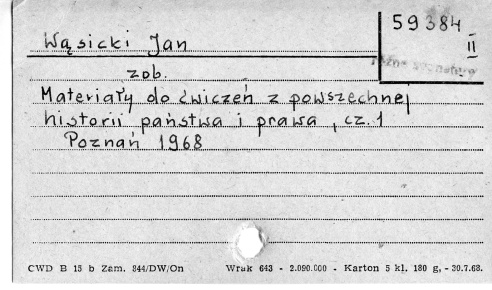 Wąsicki Jan
59384
II
różne sygnatury
zob.
Materiały do ćwiczeń z powszechnej
historii państwa i prawa, cz. 1
Poznań 1968
CWD B 15 b Zam. 844/DW/On Wrak 643 - 2.090.000 - Karton 5 kl. 180 g, - 30.7.68.